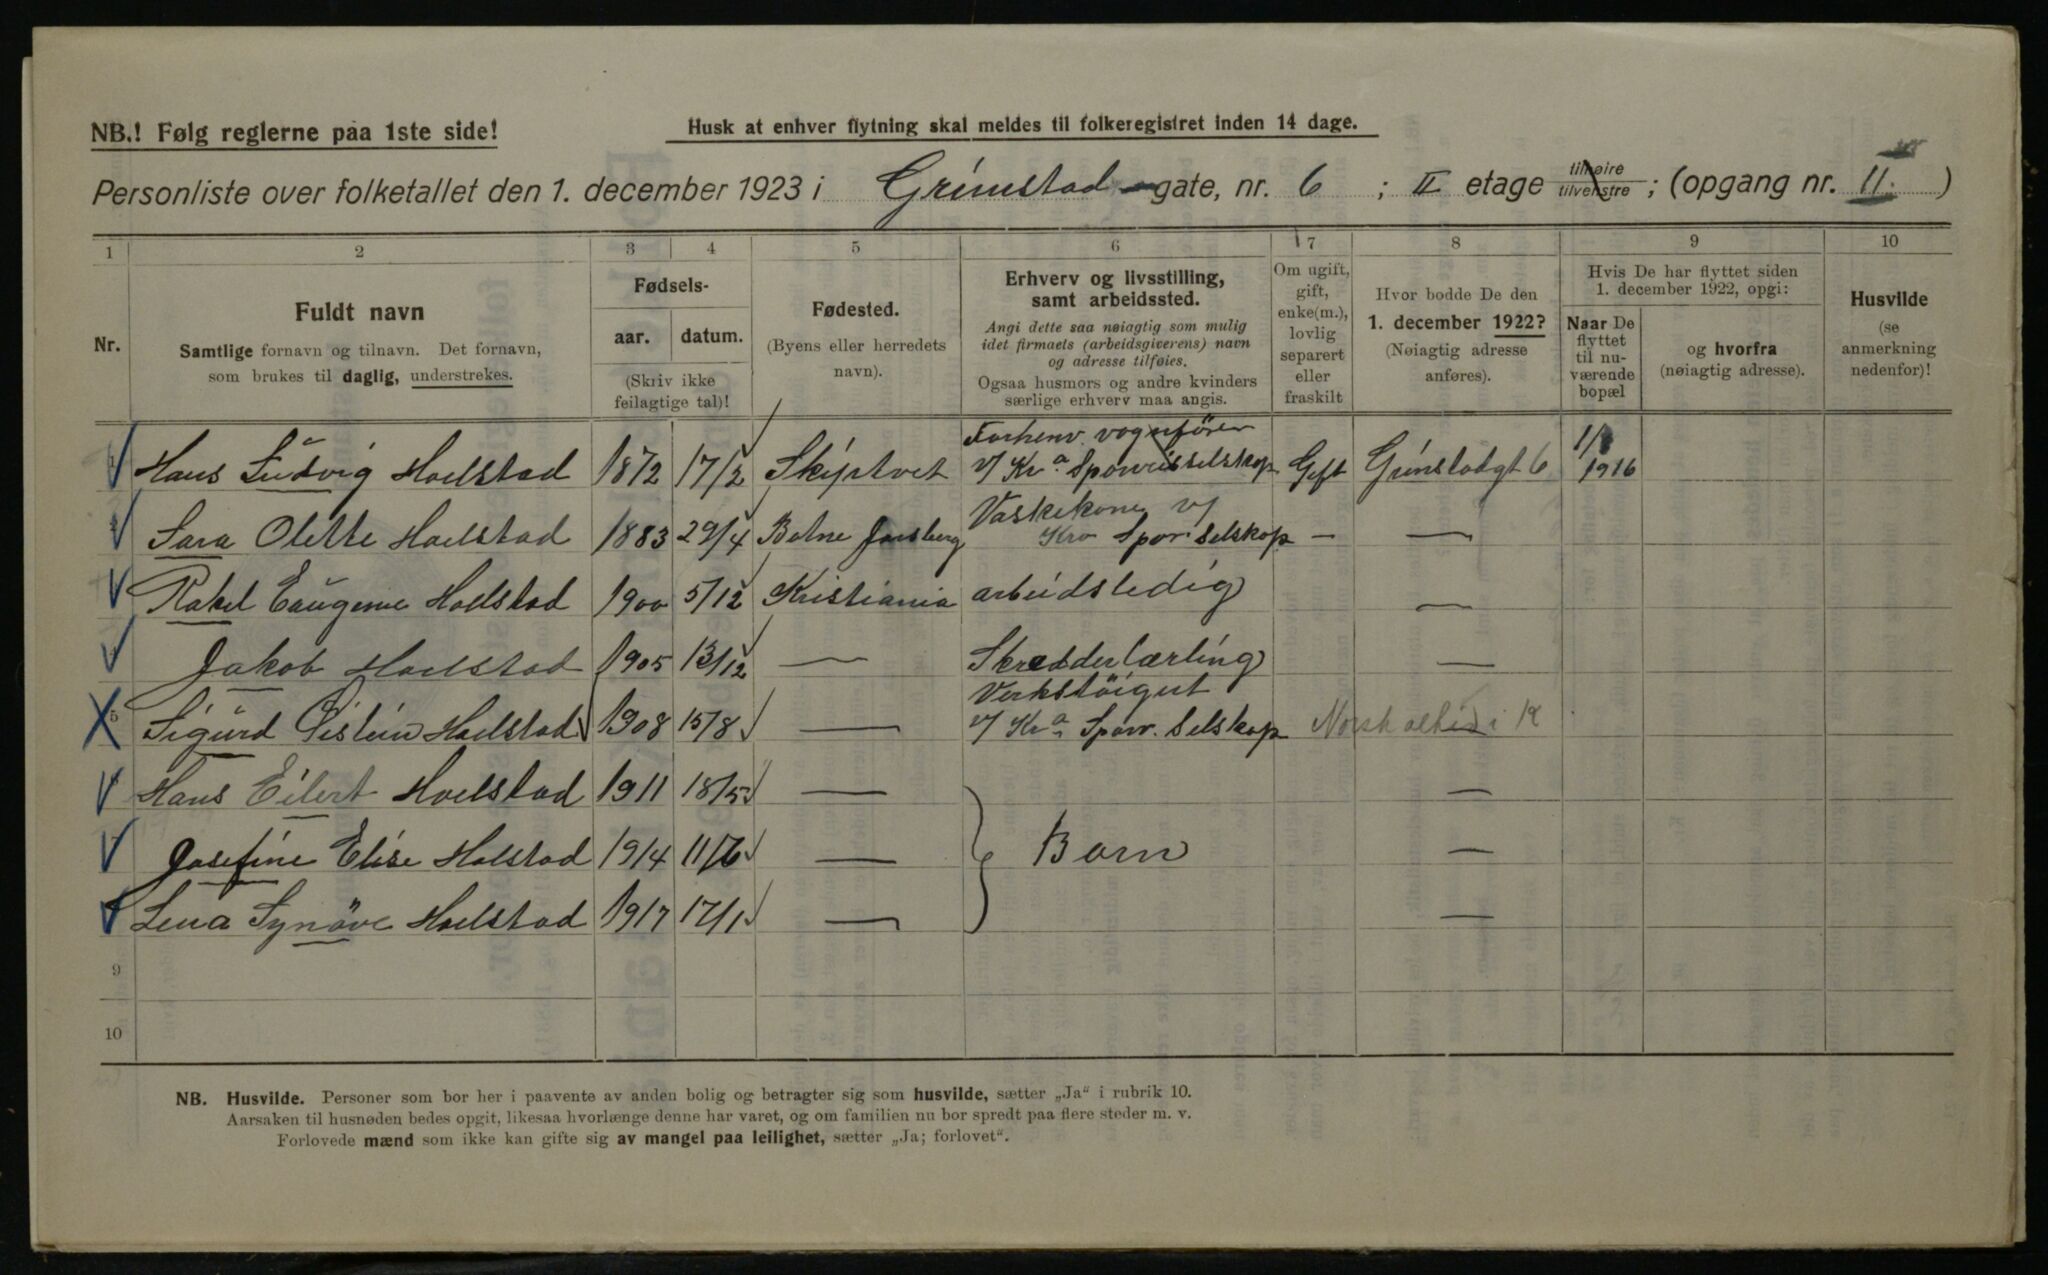 NB.! Følg reglerne paa 1ste side!
Husk at enhver flytning skal meldes til folkeregistret inden 14 dage.
Personliste over folketallet den 1. december 1923 i Grimstad-gate, nr. 6 ; II etage tilhøire tilvenstre ; (opgang nr. II. )
1 2 3 4 5 6 7 8 9 10
Nr.
Fuldt navn
Samtlige fornavn og tilnavn. Det fornavn,
som brukes til daglig, understrekes.
Fødsels-
aar. datum.
(Skriv ikke
feilagtige tal)!
Fødested.
(Byens eller herredets
navn).
Erhverv og livsstilling,
samt arbeidssted.
Angi dette saa nøiagtig som mulig
idet firmaets (arbeidsgiverens) navn
og adresse tilføies.
Ogsaa husmors og andre kvinders
særlige erhverv maa angis.
Om ugift,
gift,
enke(m.),
lovlig
separert
eller
fraskilt
Hvor bodde De den
1. december 1922?
(Nøiagtig adresse
anføres).
Hvis De har flyttet siden
1. december 1922, opgi:
Naar De
flyttet
til nu-
værende
bopæl
og hvorfra
(nøiagtig adresse).
Husvilde
(se
anmerkning
nedenfor)!
Forhenv. vognfører
Hans Ludvig Hoelstad 1872 17/2 Skiptvet v/ Kra Sporveisselskap Gift Grimstadgt 6 1916
Vaskekone v/
Sara Olette Hoelstad 1883 29/4 Botne Jarlsberg Kra Spor. Selskap — —
Rakel Eaugenie Hoelstad 1900 5/12 Kristiania arbeidsledig —
Jakob Hoelstad 1905 13/12 — Skredderlærling —
Verkstöigut
5 Sigurd Öistein Hoelstad 1908 15/8 — v/ Kra Sporv. Selskap
Hans Eilert Hoelstad 1911 18/5 — —
Josefine Elise Holstad 1914 11/6 — Barn —
Lena Synöve Hoelstad 1917 17/1 — —
9
10
NB. Husvilde. Personer som bor her i paavente av anden bolig og betragter sig som husvilde, sætter „Ja“ i rubrik 10.
Aarsaken til husnøden bedes opgit, likesaa hvorlænge denne har varet, og om familien nu bor spredt paa flere steder m. v.
Forlovede mænd som ikke kan gifte sig av mangel paa leilighet, sætter „Ja; forlovet“.